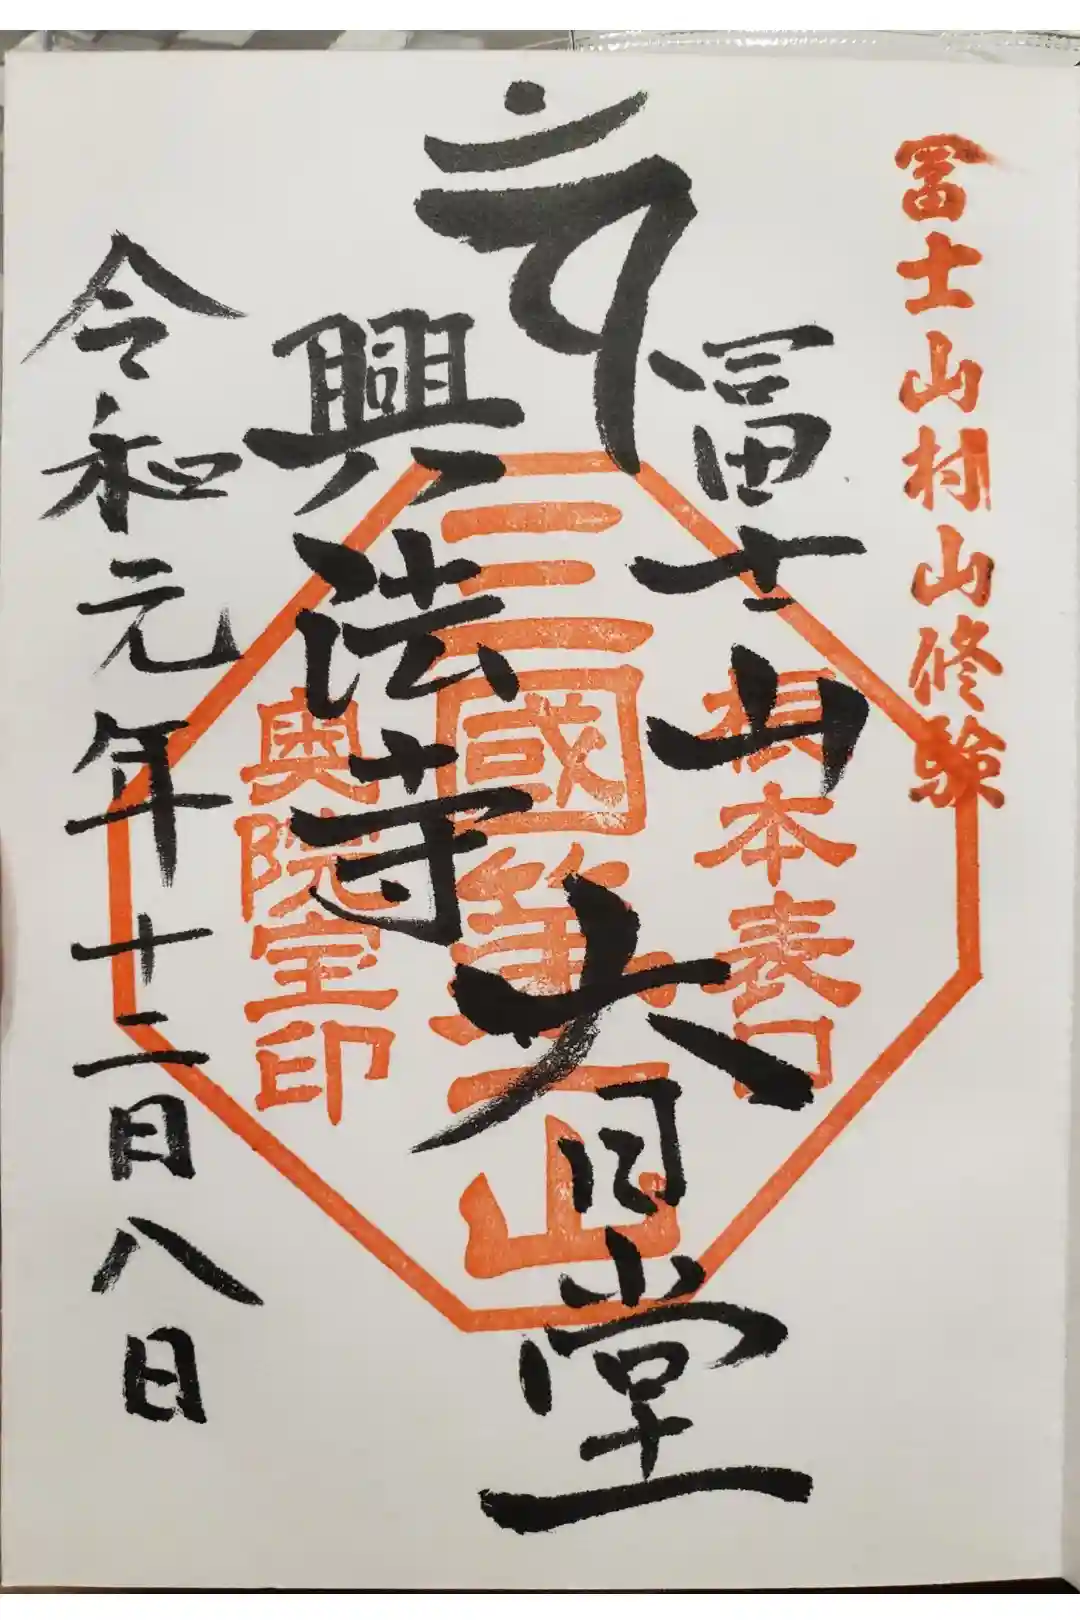 冨士山村山修験
冨士山
興法寺
大日堂
根本表口
三國第一山
奥院宝印
令和元年十二月八日